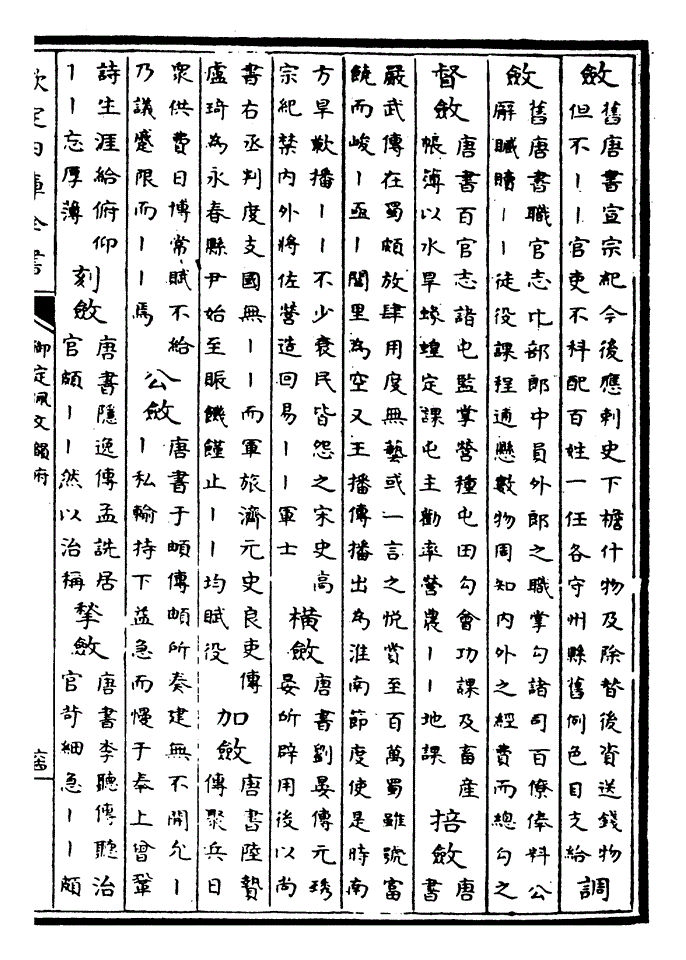 斂
舊唐書宣宗紀今後應刺史下檐什物及除替後資送錢物
但不丨丨官吏不科配百姓一任各守州縣舊例色目支給
調
斂
舊唐書職官志比部郎中員外郎之職掌勾諸司百僚俸料公
廨贓贖丨丨徒役課程逋懸數物周知內外之經費而總勾之
督斂
唐書百官志諸屯監掌營種屯田勾會功課及畜產
帳簿以水旱蝝蝗定課屯主勸率營農丨丨地課
掊斂
唐
書
嚴武傳在蜀頗放肆用度無藝或一言之悅賞至百萬蜀雖號富
饒而峻丨亟丨閭里為空又王播傳播出為淮南節度使是時南
方旱歉播丨丨不少衰民皆怨之宋史高
宗紀禁內外將佐營造回易丨丨軍士
橫斂
唐書劉晏傳元琇
晏所辟用後以尚
書右丞判度支國無丨丨而軍旅濟元史良吏傳
盧琦為永春縣尹始至賑饑饉止丨丨均賦役
加斂
唐書陸贄
傳聚兵日
衆供費日博常賦不給
乃議蹙限而丨丨焉
公斂
唐書于頔傳頔所奏建無不開允丨
丨私輸持下益急而慢于奉上曾鞏
詩生涯給俯仰
丨丨忘厚薄
刻斂
唐書隱逸傳孟詵居
官頗丨丨然以治稱
揫斂
唐書李聽傳聽治
官苛細急丨丨頗
欽定四庫全書
御定佩文韻府